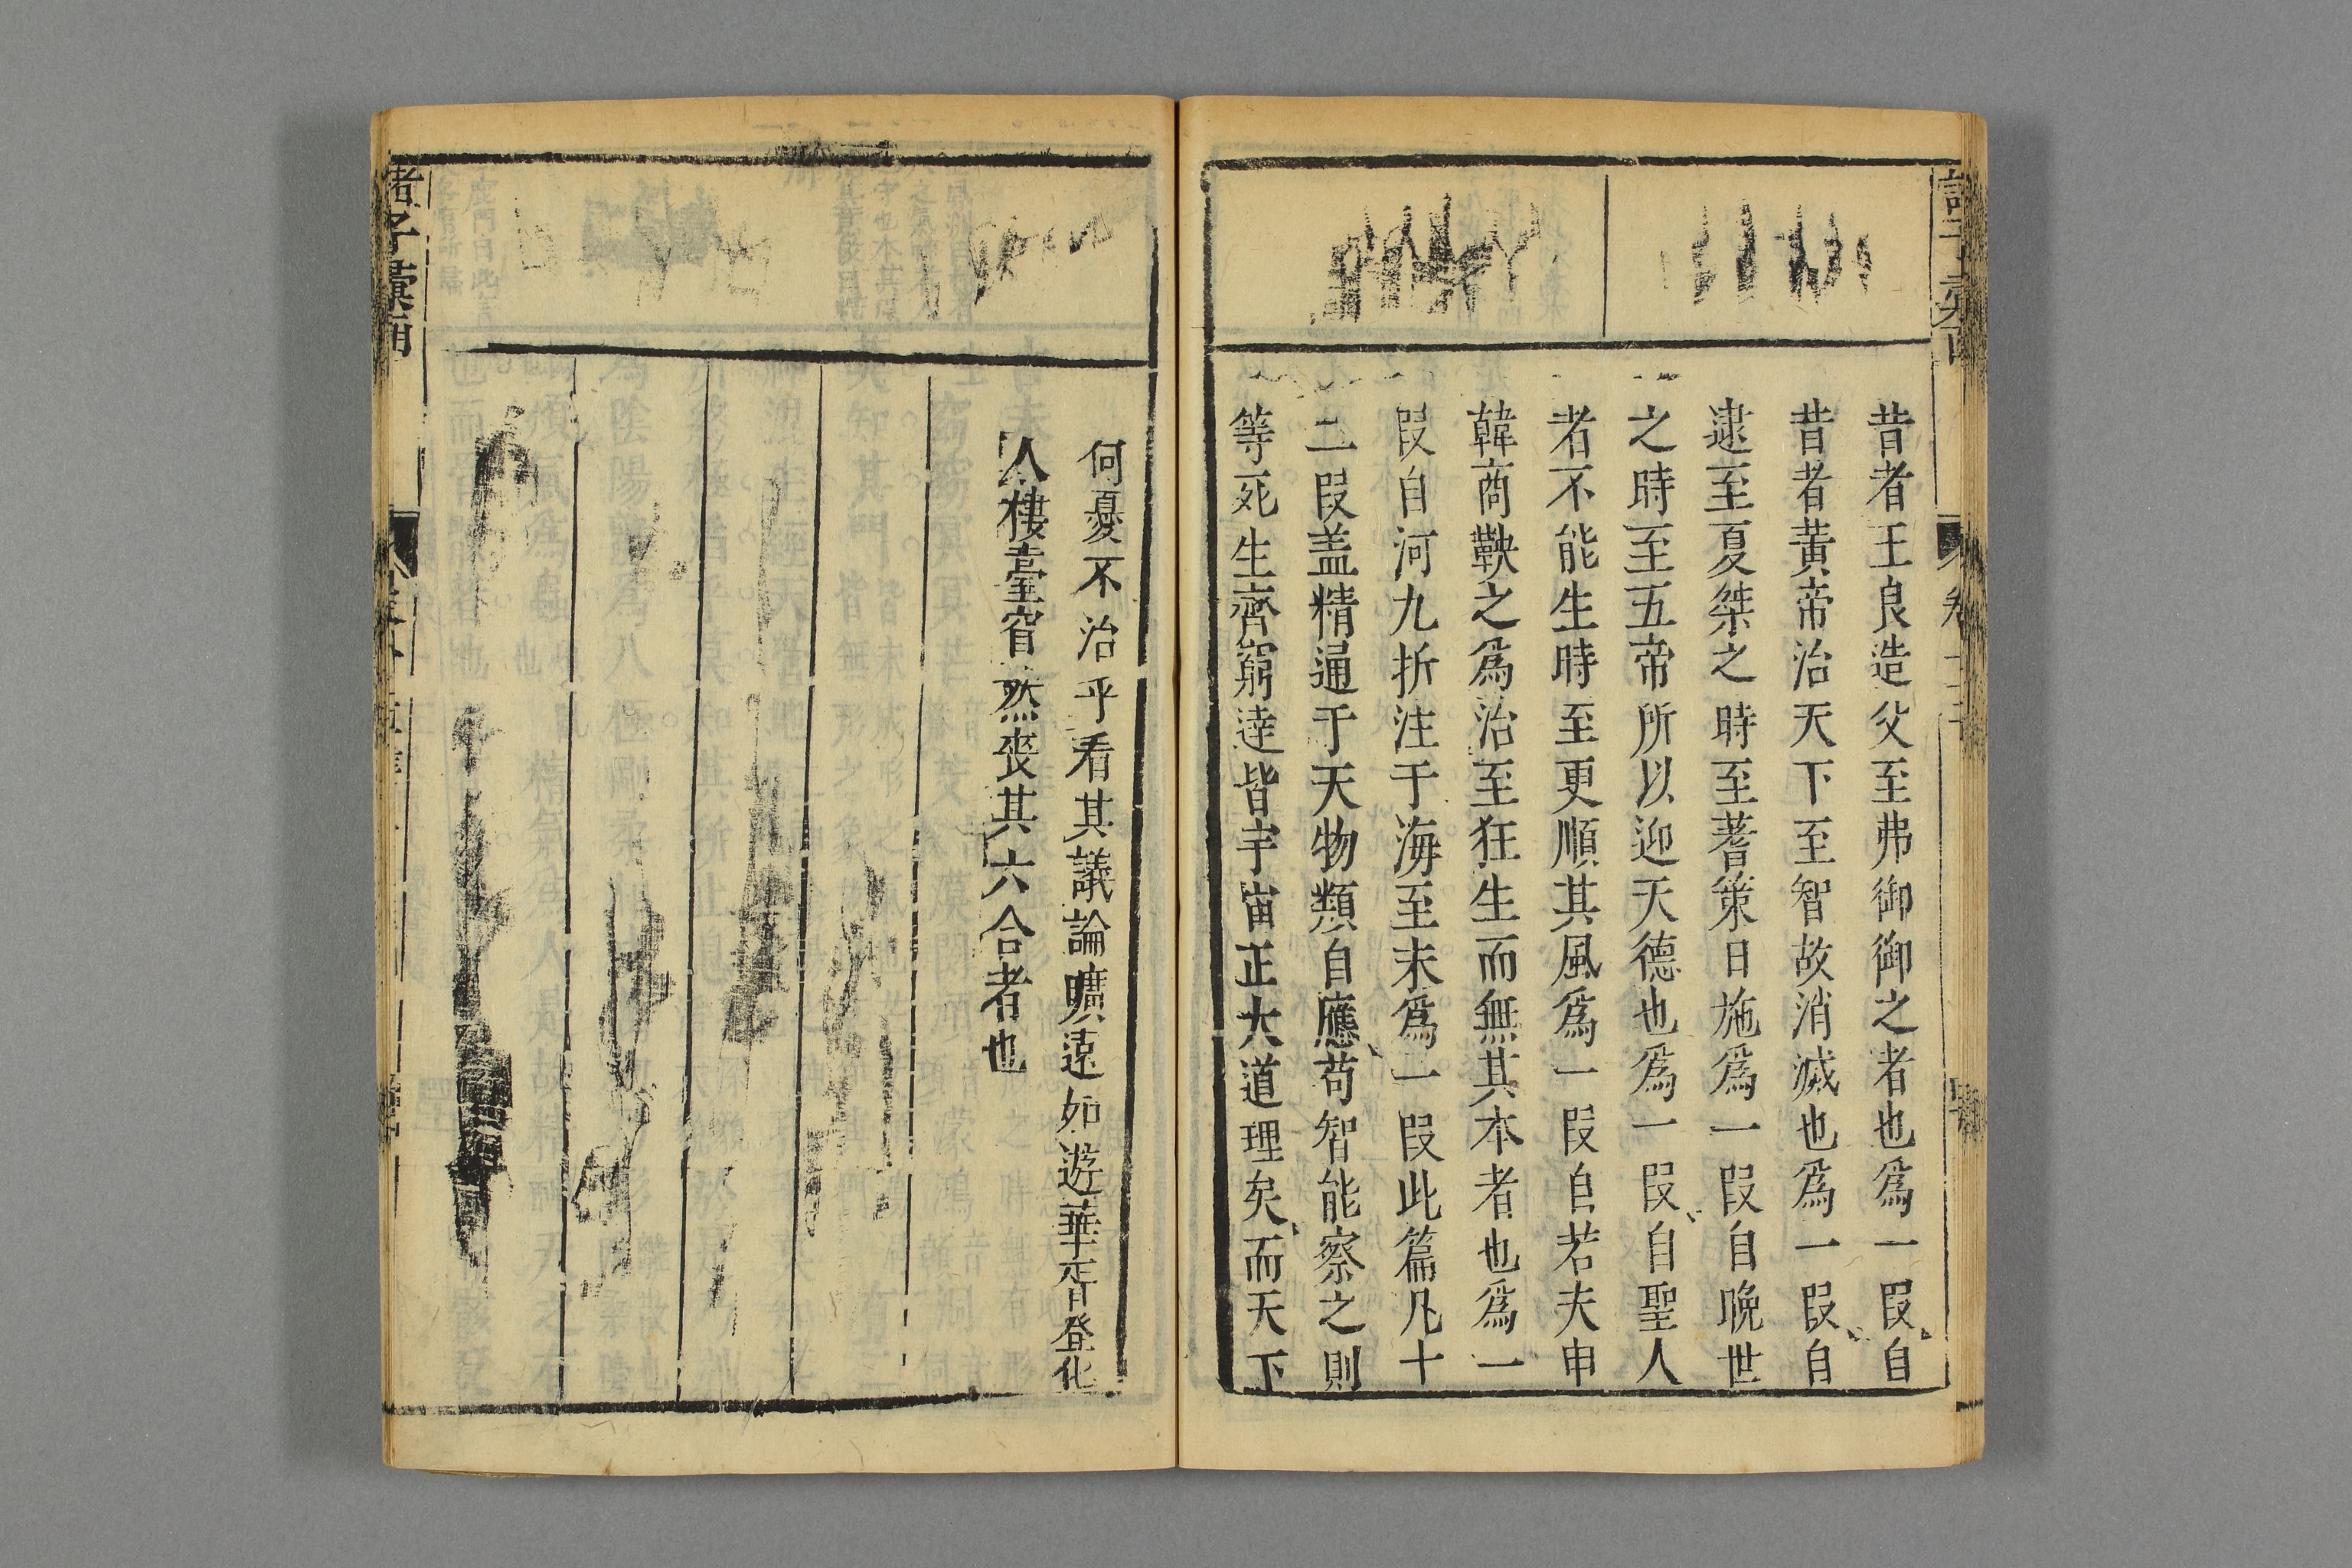 昔者王良造父至弗御御之者也爲一叚自
昔者黃帝治天下至智故消滅也爲一叚自
逮至夏桀之時至蓍策日施爲一叚自晚世
之時至五帝所以迎天德也爲一叚自聖人
者不能生時至更順其風爲一叚自若夫申
韓商鞅之爲治至狂生而無其本者也爲一
叚自河九折注于海至末爲一叚此篇凡十
二叚盖精通于天物類自應苟智能察之則
等死生齊窮達皆宇宙正大道理矣而天下
何憂不治乎看其議論曠遠如遊華胥登化
人樓臺窅然喪其六合者也